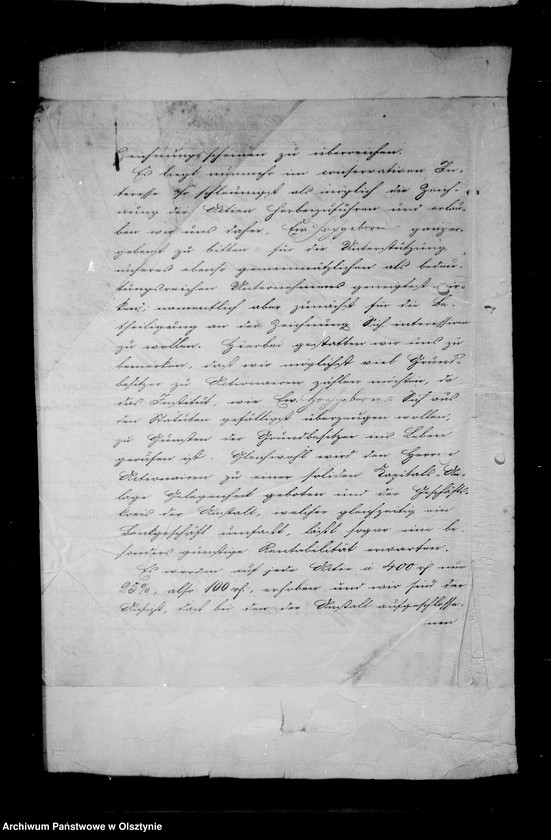 Zeichnungsscheinen zu überreichen.
Es liegt nunmehr im conservativen In-
teresse so schleunigst als möglich die Zeich-
nung der Actien herbeizuführen und erlau-
ben wir uns daher, Ew. Hochgeboren ganz er-
gebenst zu bitten: für die Unterstützung
unseres ebenso gemeinnützlichen als bedeu-
tungsreichen Unternehmens geneigtest wir-
ken, namentlich aber zunächst für die Be-
theiligung an der Zeichnung Sich interessiren
zu wollen. Hierbei gestatten wir uns zu
bemerken, daß wir möglichst viel Grund-
besitzer zu Actionairen zählen möchten, da
das Institut, wie Ew. Hochgeboren Sich aus
den Statuten gefälligst überzeugen wollen,
zu Gunsten der Grundbesitzer ins Leben
gerufen ist. Gleichwohl wird den Herren
Actionairen zu einer soliden Kapitals-An-
lage Gelegenheit geboten und der Geschäfts-
kreis der Anstalt, welcher gleichzeitig ein
Bankgeschäft umfaßt, läßt sogar eine be-
sonders günstige Rentabilität erwarten.
Es werden auf jede Actie à 400 rf nur
25%, also 100 rf, erhoben und wir sind der
Ansicht, daß bei den der Anstalt aufgeschlosse-
nen
Archiwum Państwowe w Olsztynie